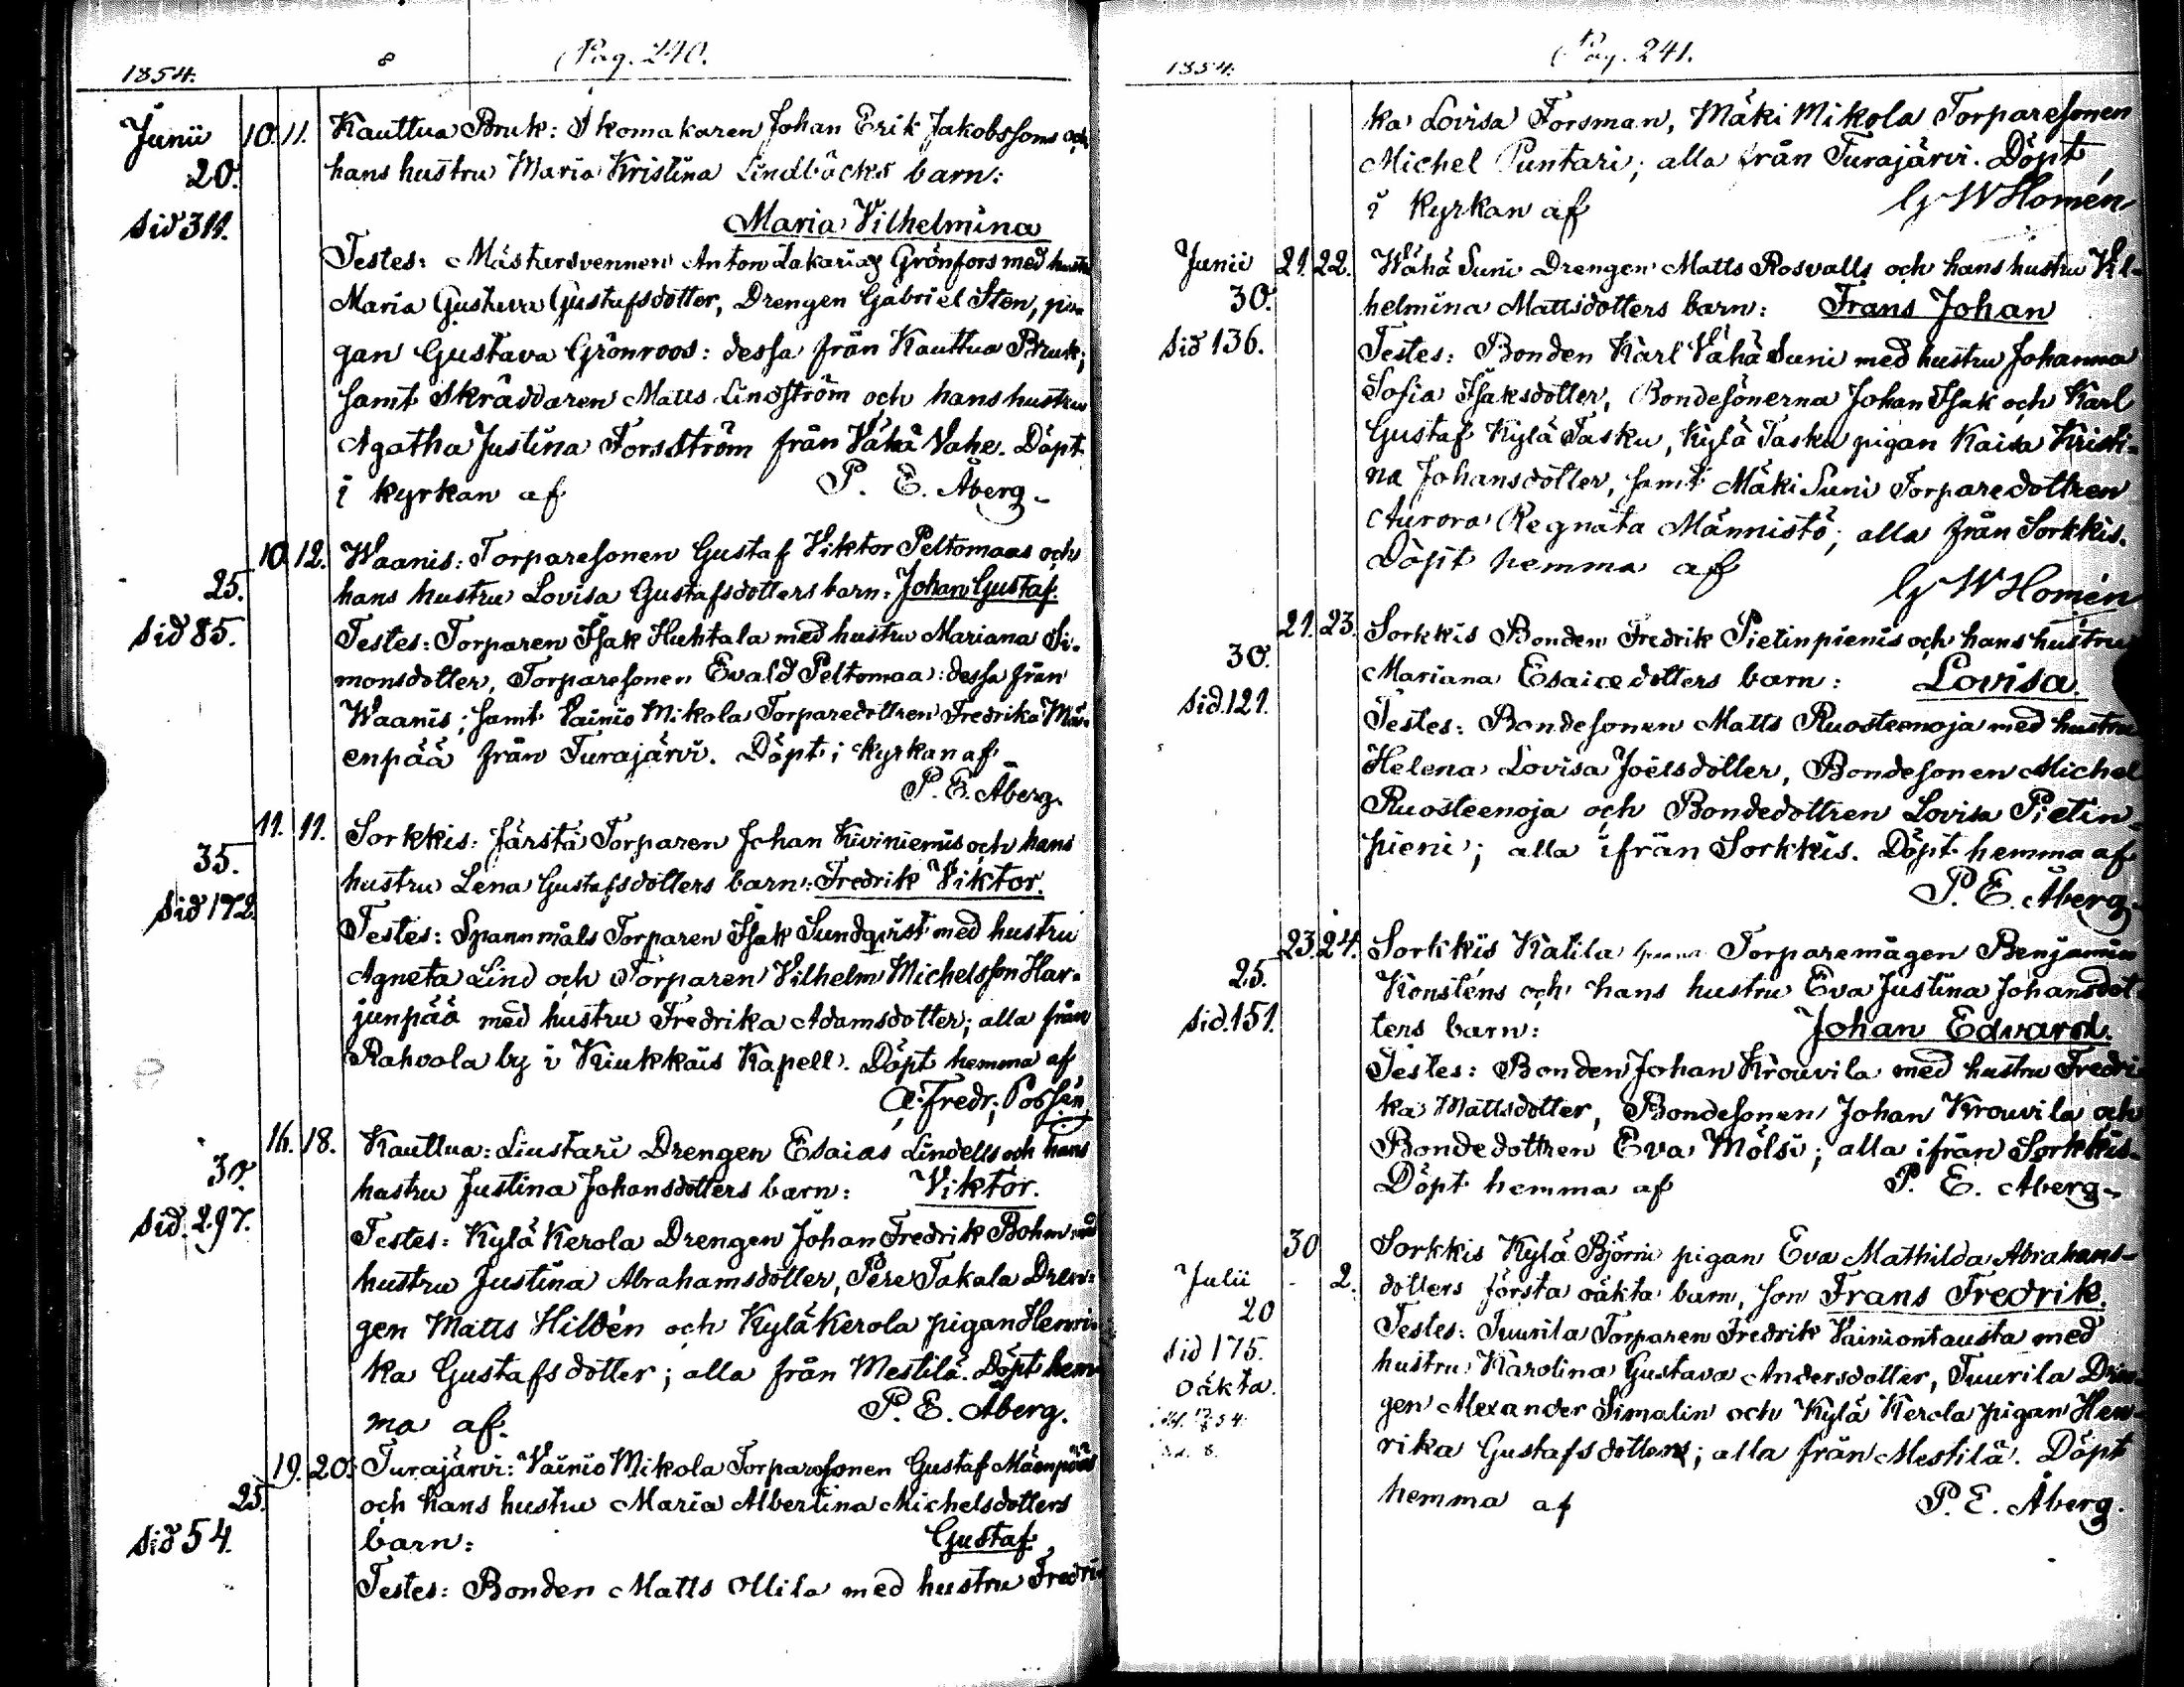 1854. 8 (Pag. 240.
Junii 10. 11. Kauttua Bruk: Skomakaren Johan Erik Jakobssons och
20. hans hustru Maria Kristina Lindbäcks barn:
Sid 311. Maria Vilhelmina
Testes: Mästersvennen Anton Zakarias Grönfors med hustru
Maria Gustava Gustafsdotter, Drengen Gabriel Sten, pi-
gan Gustava Grönroos: dessa från Kauttua Bruk;
samt Skräddaren Matts Lindström och hans hustru
Agatha Justina Forsström från Vähä Vahe. Döpt
i kyrkan af P. E. Åberg
10. 12. Waanis: Torparesonen Gustaf Viktor Peltomaas och
25. hans hustru Lovisa Gustafsdotters barn: Johan Gustaf.
Sid 85. Testes: Torparen Isak Huhtala med hustru Mariana Si-
monsdotter, Torparesonen Evald Peltomaa: dessa från
Waanis; samt Vainio Mikola Torparedottren Fredrika Mä-
enpää från Turajärvi. Döpt i kyrkan af
P. E. Åberg.
11. 11. Sorkkis: Järstä Torparen Johan Kiviniemis och hans
35. hustru Lena Gustafsdotters barn: Fredrik Viktor.
Sid 172.
Testes: Spannmåls Torparen Isak Sundqvist med hustru
Agneta Lind och Torparen Vilhelm Michelsson Har-
junpää med hustru Fredrika Adamsdotter; alla från
Rahvola by i Kiukkais Kapell. Döpt hemma af
Fredr. Possén
16. 18. Kauttua: Liustari Drengen Esaias Lindells och hans
30. hustru Justina Johansdotters barn: Viktor.
Sid. 297. Testes: Kylä Kerola Drengen Johan Fredrik Bohm med
hustru Justina Abrahamsdotter, Pere Takala Dren-
gen Matts Hildén och Kylä Kerola pigan Henri-
ka Gustafsdotter; alla från Mestilä. Döpt hem-
ma af P. E. Åberg.
19. 20. Turajärvi: Vainio Mikola Torparesonen Gustaf Mäenpääs
25. och hans hustru Maria Albertina Michelsdotters
Sid 54. barn: Gustaf
Testes: Bonden Matts Ollila med hustru Fredri-
1854. (Pag. 241.
ka Lovisa Forsman, Mäki Mikola Torparesonen
Michel Puntari; alla från Turajärvi. Döpt
i kyrkan af G W Homén
Junii 21. 22. Wähä Suni Drengen Matts Rosvalls och hans hustru Vil-
30. helmina Mattsdotters barn: Frans Johan
Sid 136. Testes: Bonden Karl Vähä Suni med hustru Johanna
Sofia Isaksdotter, Bondesönerna Johan Isak och Karl
Gustaf Kylä Tasku, Kylä Tasku pigan Kaisa Kristi-
na Johansdotter, samt Mäki Suni Torparedottren
Aurora Regnata Männistö; alla från Sorkkis.
Döpt hemma af G W Homén
21. 23. Sorkkis Bonden Fredrik Pietinpienis och hans hustru
30. Mariana Esaiædotters barn: Lovisa.
Sid. 121. Testes: Bondesonen Matts Ruosteenoja med hustru
Helena Lovisa Joëlsdotter, Bondesonen Michel
Ruosteenoja och Bondedottren Lovisa Pietin-
pieni; alla ifrån Sorkkis. Döpt hemma af
P. E. Åberg.
23. 24. Sorkkis Katila Torparemågen Benjamin
25. Konsténs och hans hustru Eva Justina Johansdot-
Sid. 151. ters barn: Johan Edvard.
Testes: Bonden Johan Krouvila med hustru Fredri-
ka Mattsdotter, Bondesonen Johan Krouvila och
Bondedottren Eva Mölsi; alla ifrån Sorkkis.
Döpt hemma af P. E. Åberg.
30 Sorkkis Kylä Björni pigan Eva Mathilda Abrahams-
Julii - 2. dotters första oäkta barn, son Frans Fredrik.
20 Testes: Tuurila Torparen Fredrik Vainiontausta med
Sid 175. hustru Karolina Gustava Andersdotter, Tuurila Dren-
oäkta. gen Alexander Simalin och Kylä Kerola pigan Hen-
rika Gustafsdotter; alla från Mestilä. Döpt
hemma af P. E. Åberg.